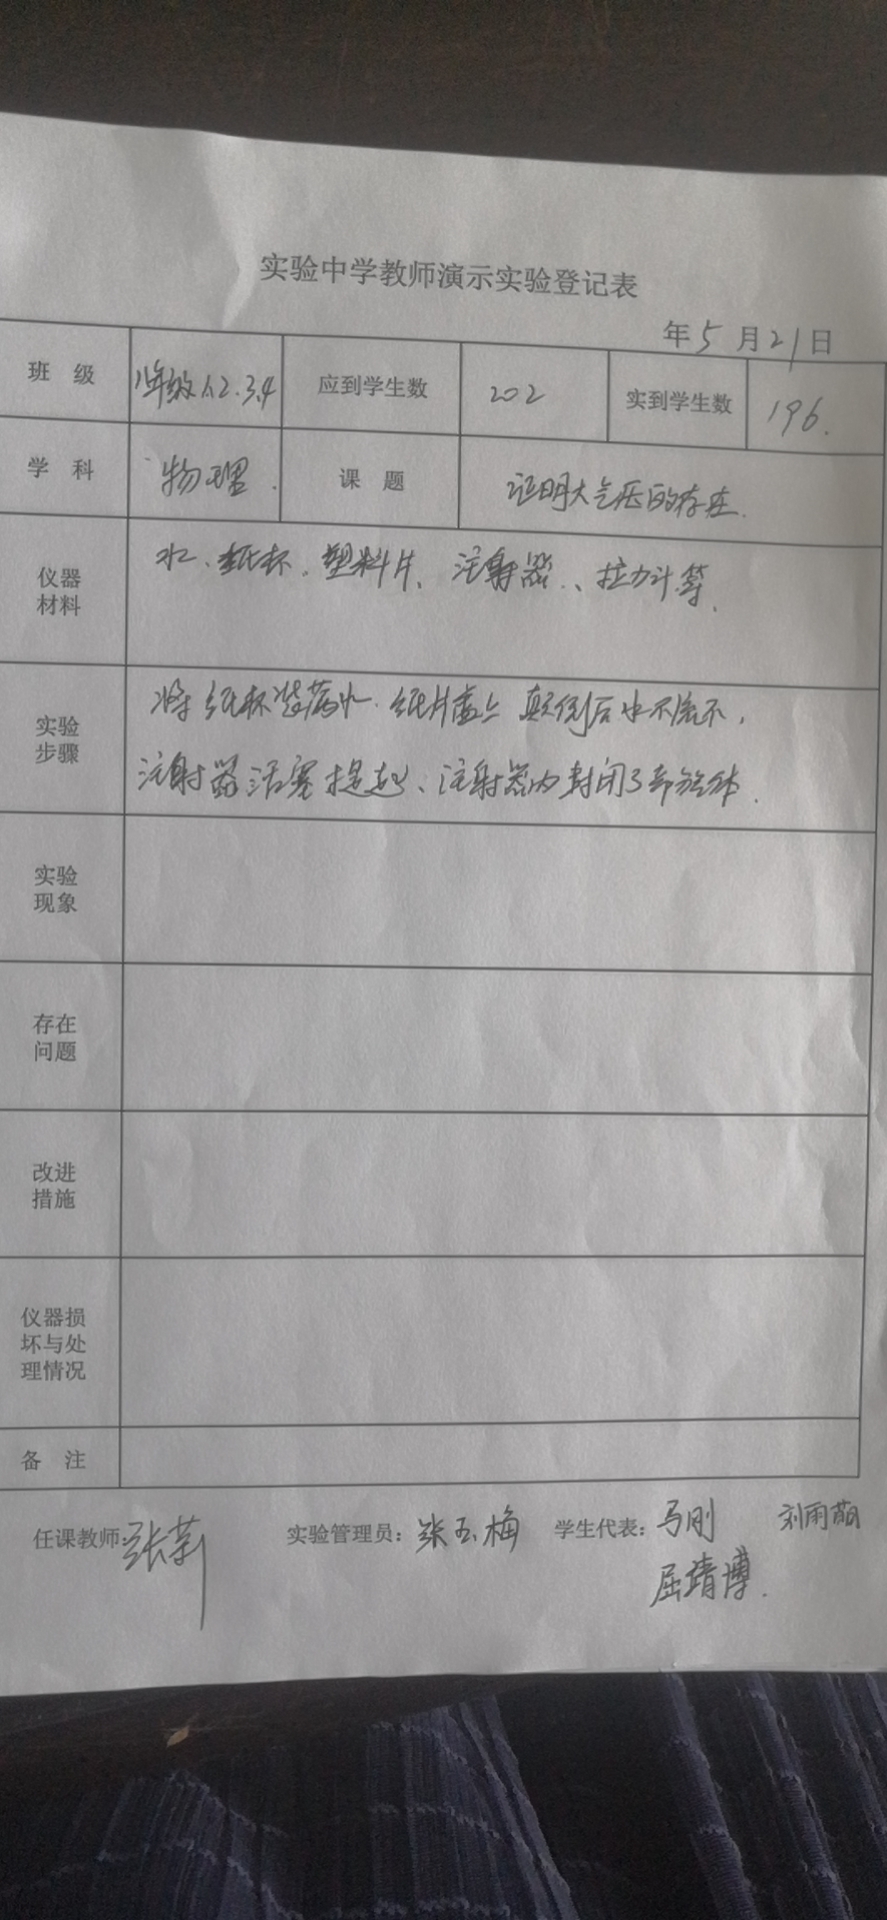 实验中学教师演示实验登记表
年5月21日
班 级 八年级1.2.3.4 应到学生数 202 实到学生数 196.
学 科 物理. 课 题 证明大气压的存在.
仪器材料 水、纸杯、塑料片、注射器、、拉力计等.
实验步骤 将纸杯装满水.纸片盖上 颠倒后水不流下,
注射器活塞提起、注射器内封闭了部分气体.
实验现象
存在问题
改进措施
仪器损坏与处理情况
备 注
任课教师: 实验管理员: 张玉梅 学生代表: 马刚 刘雨萌
屈靖博.